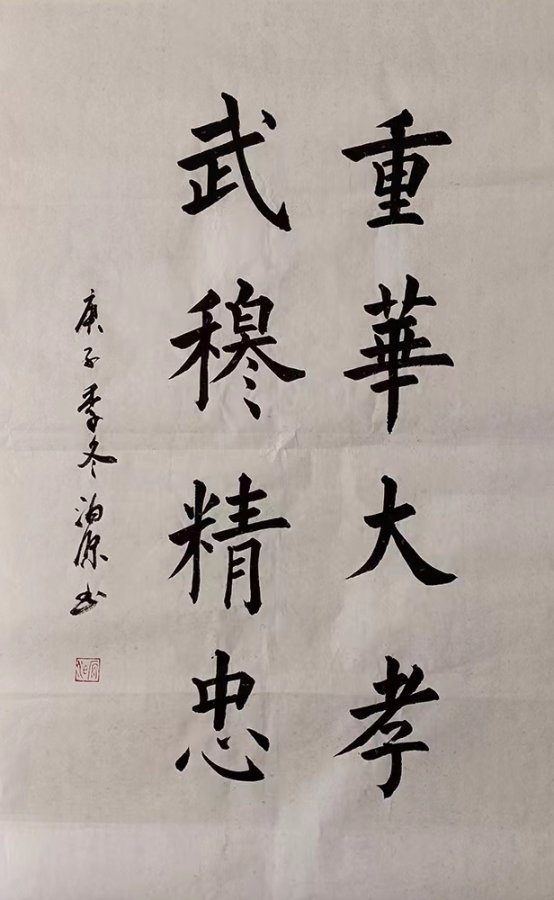 重華大孝
武穆精忠
庚子季冬泊源书